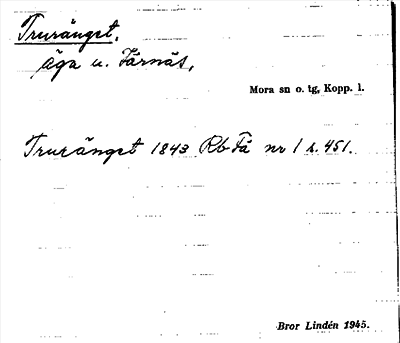 Truränget,
äga u. Färnäs,
Mora sn o. tg, Kopp. l.
Truränget 1843 Rb Få nr 1 s. 451.
Bror Lindén 1945.